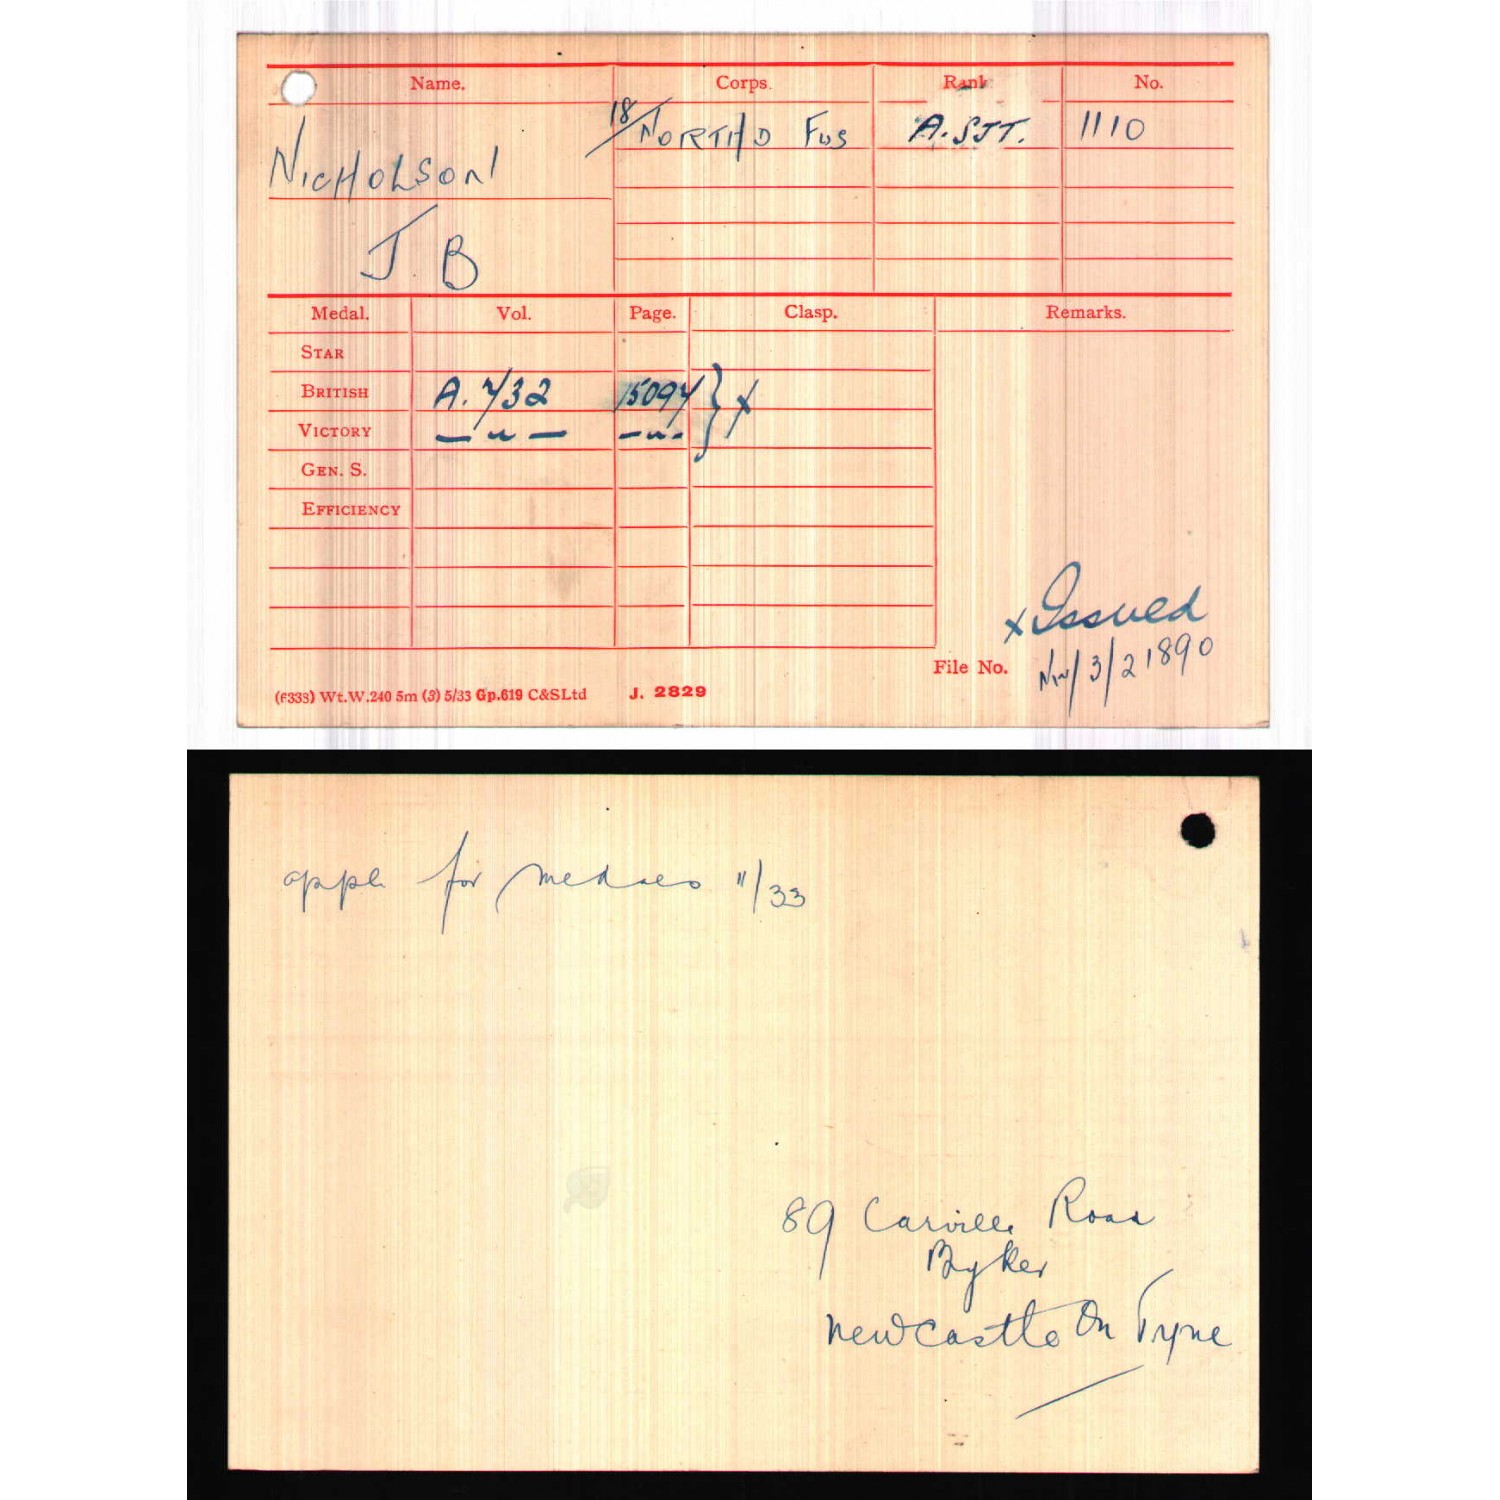 Name. Corps. Rank No.
18/NORTH'D FUS A.SJT. 1110
NICHOLSON
J. B
Medal. Vol. Page. Clasp. Remarks.
STAR
BRITISH A. 4/32 15094 } x
VICTORY — " — — " -
GEN. S.
EFFICIENCY
x Issued
File No. NW/3/21890
(6333) Wt.W.240 5m (3) 5/33 Gp.619 C&SLtd J. 2829
appln for medals 11/33
89 Carville Road
Byker
Newcastle On Tyne